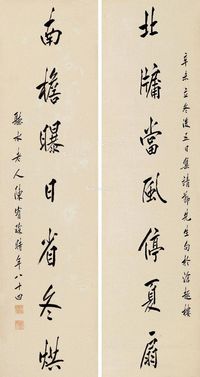 辛未立冬後三日集靖節先生句於滄趣樓
北牖當風停夏扇
南檐曝日省冬烘
聽水老人陳寶琛時年八十四